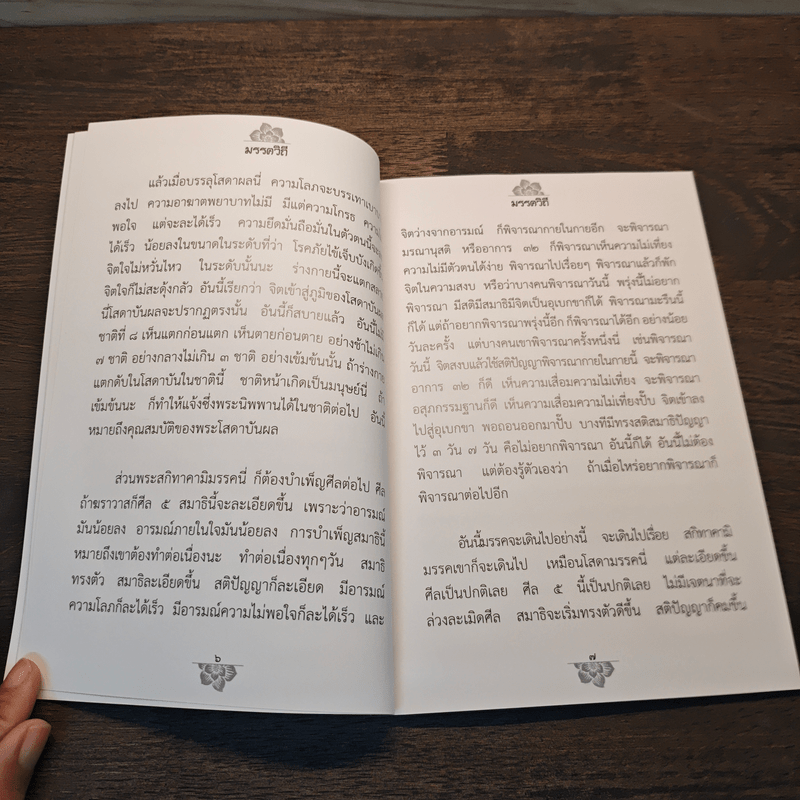 มรรควิถี
แล้วเมื่อบรรลุโสดาผลนี่ ความโลภจะบรรเทาเบาบาง
ลงไป ความอาฆาตพยาบาทไม่มี มีแต่ความโกรธ
พอใจ แต่จะละได้เร็ว ความยึดมั่นถือมั่นในตัวตนนี้จะ
ได้เร็ว น้อยลงในขนาดในระดับที่ว่า โรคภัยไข้เจ็บบังเกิดขึ้น
จิตใจไม่หวั่นไหว ในระดับนั้นนะ ร่างกายนี้จะแตกสลาย
จิตใจก็ไม่สะดุ้งกลัว อันนี้เรียกว่า จิตเข้าสู่ภูมิของโสดาบันผล
นี่โสดาบันผลจะปรากฏตรงนั้น อันนี้ก็สบายแล้ว อันนี้ไม่
ชาติที่ ๘ เห็นแตกก่อนแตก เห็นตายก่อนตาย อย่างช้าไม่เกิน
๗ ชาติ อย่างกลางไม่เกิน ๓ ชาติ อย่างเข้มข้นนั้น ถ้าร่างกาย
แตกดับในโสดาบันในชาตินี้ ชาติหน้าเกิดเป็นมนุษย์นี่ ถ้า
เข้มข้นนะ ก็ทำให้แจ้งซึ่งพระนิพพานได้ในชาติต่อไป อันนี้
หมายถึงคุณสมบัติของพระโสดาบันผล
ส่วนพระสกิทาคามิมรรคนี่ ก็ต้องบำเพ็ญศีลต่อไป ศีล
ถ้าฆราวาสก็ศีล ๕ สมาธินี้จะละเอียดขึ้น เพราะว่าอารมณ์
มันน้อยลง อารมณ์ภายในใจมันน้อยลง การบำเพ็ญสมาธินี้
หมายถึงเขาต้องทำต่อเนื่องนะ ทำต่อเนื่องทุกๆวัน สมาธิ
ทรงตัว สมาธิละเอียดขึ้น สติปัญญาก็ละเอียด มีอารมณ์
ความโลภก็ละได้เร็ว มีอารมณ์ความไม่พอใจก็ละได้เร็ว และ
๖
มรรควิถี
จิตว่างจากอารมณ์ ก็พิจารณากายในกายอีก จะพิจารณา
มรณานุสติ หรืออาการ ๓๒ ก็พิจารณาเห็นความไม่เที่ยง
ความไม่มีตัวตนได้ง่าย พิจารณาไปเรื่อยๆ พิจารณาแล้วก็พัก
จิตในความสงบ หรือว่าบางคนพิจารณาวันนี้ พรุ่งนี้ไม่อยาก
พิจารณา มีสติมีสมาธิมีจิตเป็นอุเบกขาก็ได้ พิจารณามะรืนนี้
ก็ได้ แต่ถ้าอยากพิจารณาพรุ่งนี้อีก ก็พิจารณาได้อีก อย่างน้อย
วันละครั้ง แต่บางคนเขาพิจารณาครั้งหนึ่งนี่ เช่นพิจารณา
วันนี้ จิตสงบแล้วใช้สติปัญญาพิจารณากายในกายนี้ จะพิจารณา
อาการ ๓๒ ก็ดี เห็นความเสื่อมความไม่เที่ยง จะพิจารณา
อสุภกรรมฐานก็ดี เห็นความเสื่อมความไม่เที่ยงปั๊บ จิตเข้าลง
ไปสู่อุเบกขา พอถอนออกมาปั๊บ บางทีมีทรงสติสมาธิปัญญา
ไว้ ๓ วัน ๗ วัน คือไม่อยากพิจารณา อันนี้ก็ได้ อันนี้ไม่ต้อง
พิจารณา แต่ต้องรู้ตัวเองว่า ถ้าเมื่อไหร่อยากพิจารณาก็
พิจารณาต่อไปอีก
อันนี้มรรคจะเดินไปอย่างนี้ จะเดินไปเรื่อย สกิทาคามิ
มรรคเขาก็จะเดินไป เหมือนโสดามรรคนี่ แต่ละเอียดขึ้น
ศีลเป็นปกติเลย ศีล ๕ นี้เป็นปกติเลย ไม่มีเจตนาที่จะ
ล่วงละเมิดศีล สมาธิจะเริ่มทรงตัวดีขึ้น สติปัญญาก็คมขึ้น
๗